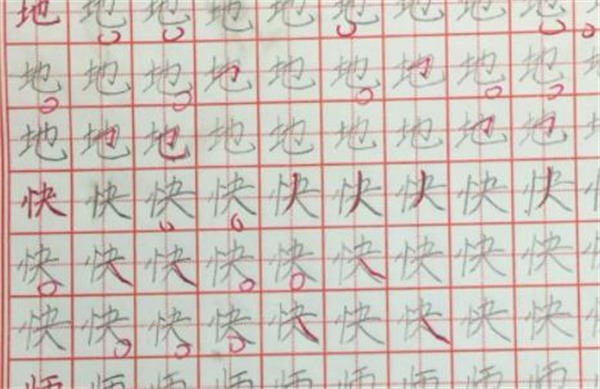 地地地地地地地地地
地地地地地地地地地地
地地地地地地地地地地
快快快快快快快快快快
快快快快快快快快快快
快快快快快快快快快快
师师师师师师师师师